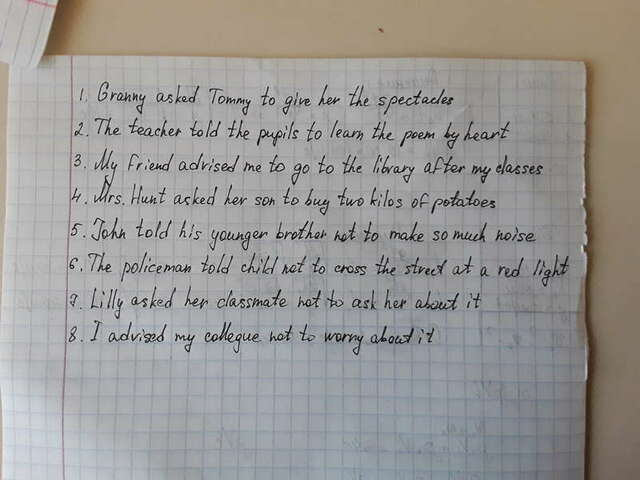 1. Granny asked Tommy to give her the spectacles
2. The teacher told the pupils to learn the poem by heart
3. My friend advised me to go to the library after my classes
4. Mrs. Hunt asked her son to buy two kilos of potatoes
5. John told his younger brother not to make so much noise
6. The policeman told child not to cross the street at a red light
7. Lilly asked her classmate not to ask her about it
8. I advised my collegue not to worry about it